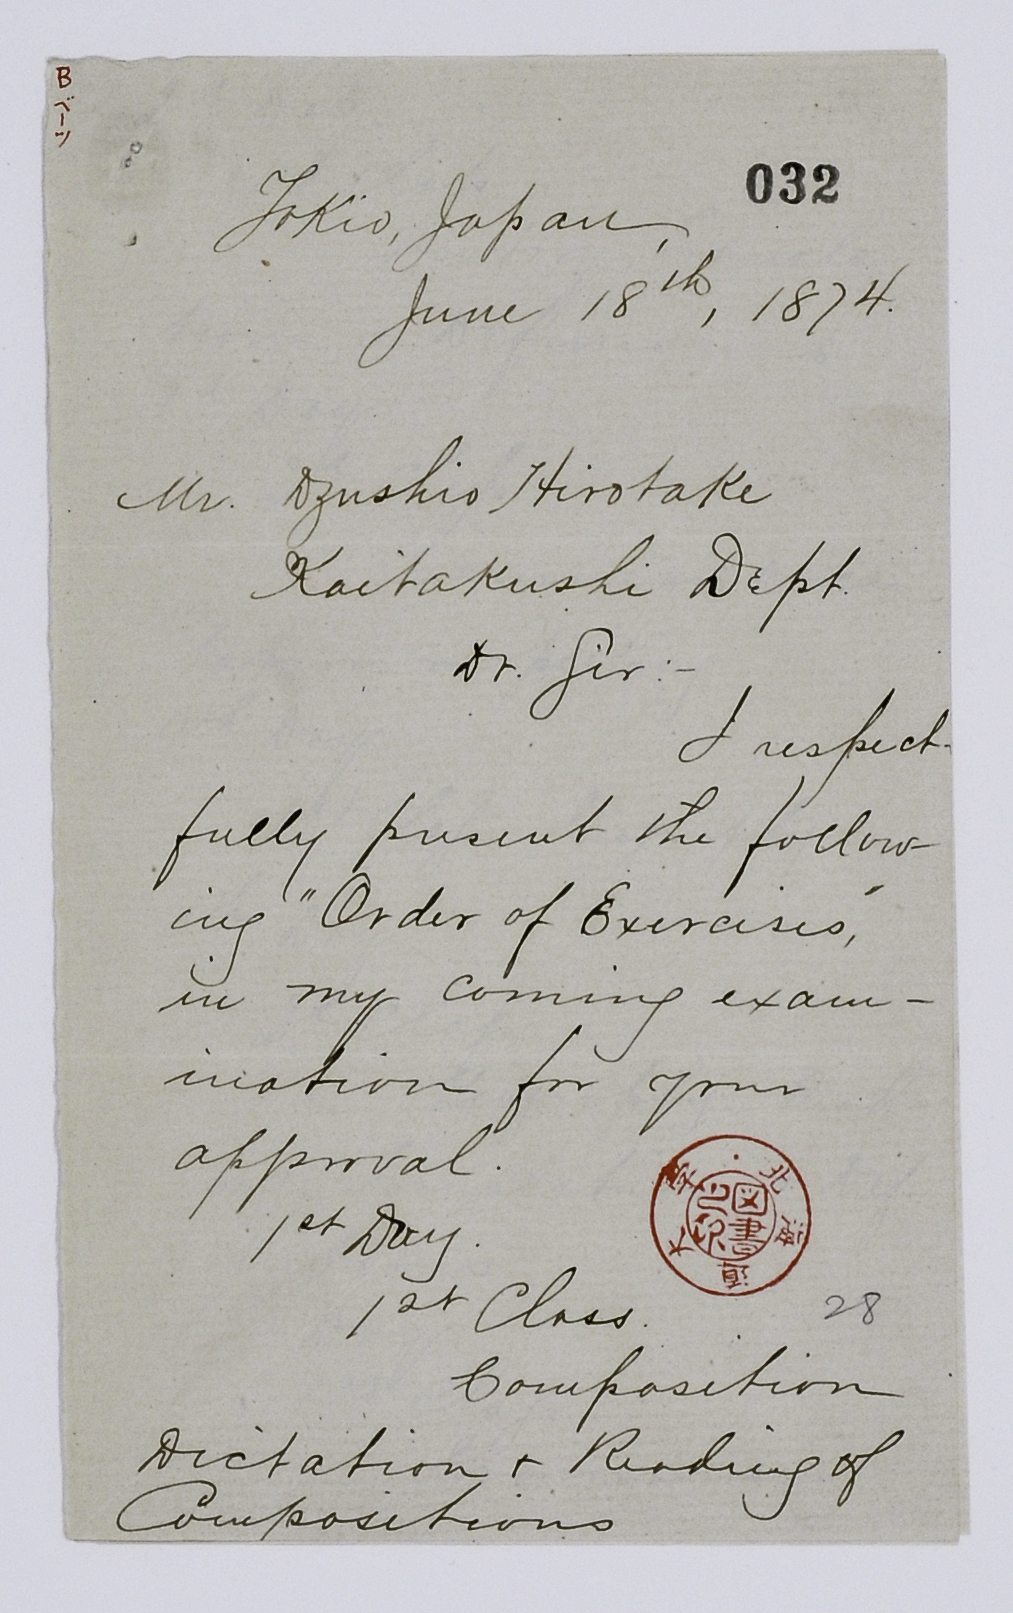 B ベーツ
032
Tokio, Japan,
June 18th, 1874.
Mr. Dzushio Hirotake
Kaitakushi Dept.
Dr. Sir:-
I respect-
fully present the follow-
ing "Order of Exercises,"
in my coming exam-
ination for your
approval.
1st Day.
北海道大学
図書之印
1st Class.
28
Composition
Dictation & Reading of
Compositions